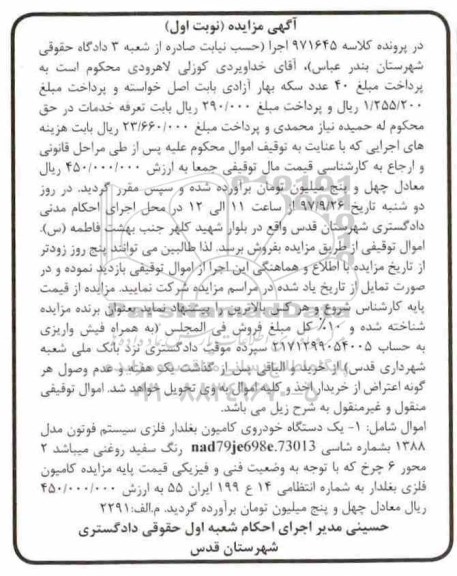 آگهی مزایده (نوبت اول)
در پرونده کلاسه ۹۷۱۶۴۵ اجرا (حسب نیابت صادره از شعبه ۳ دادگاه حقوقی
شهرستان بندر عباس)، آقای خداویردی کوزلی لاهرودی محکوم است به
پرداخت مبلغ ۴۰ عدد سکه بهار آزادی بابت اصل خواسته و پرداخت مبلغ
۱/۲۵۵/۲۰۰ ریال و پرداخت مبلغ ۲۹۰/۰۰۰ ریال بابت تعرفه خدمات در حق
محکوم له حمیده نیاز محمدی و پرداخت مبلغ ۲۳/۶۶۰/۰۰۰ ریال بابت هزینه
های اجرایی که با عنایت به توقیف اموال محکوم علیه پس از طی مراحل قانونی
و ارجاع به کارشناسی قیمت مال توقیفی جمعا به ارزش ۴۵۰/۰۰۰/۰۰۰ ریال
معادل چهل و پنج میلیون تومان برآورده شده و سپس مقرر گردید. در روز
دو شنبه تاریخ ۹۷/۹/۲۶ از ساعت ۱۱ الی ۱۲ در محل اجرای احکام مدنی
دادگستری شهرستان قدس واقع در بلوار شهید کلهر جنب بهشت فاطمه (س).
اموال توقیفی از طریق مزایده بفروش برسد. لذا طالبین می توانند پنج روز زودتر
از تاریخ مزایده با اطلاع و هماهنگی این اجرا از اموال توقیفی بازدید نموده و در
صورت تمایل از تاریخ یاد شده در مراسم مزایده شرکت نمایید. مزایده از قیمت
پایه کارشناس شروع و هر کس بالاترین را پیشنهاد نماید بعنوان برنده مزایده
شناخته شده و ۱۰٪ کل مبلغ فروش فی المجلس (به همراه فیش واریزی
به حساب ۲۱۷۱۲۹۹۰۵۴۰۰۵ سپرده موقت دادگستری نزد بانک ملی شعبه
شهرداری قدس) از خرید و الباقی پس از گذشت یک هفته و عدم وصول هر
گونه اعتراض از خریدار اخذ و کلیه اموال به وی تحویل خواهد شد. اموال توقیفی
منقول و غیرمنقول به شرح زیل می باشد.
اموال شامل: ۱- یک دستگاه خودروی کامیون بغلدار فلزی سیستم فوتون مدل
۱۳۸۸ بشماره شاسی nad79je698e.73013 رنگ سفید روغنی میباشد ۲
محور ۶ چرخ که با توجه به وضعیت فنی و فیزیکی قیمت پایه مزایده کامیون
فلزی بغلدار به شماره انتظامی ۱۴ ع ۱۹۹ ایران ۵۵ به ارزش ۴۵۰/۰۰۰/۰۰۰
ریال معادل چهل و پنج میلیون تومان برآورده گردید. م.الف:۲۲۹۱
حسینی مدیر اجرای احکام شعبه اول حقوقی دادگستری
شهرستان قدس